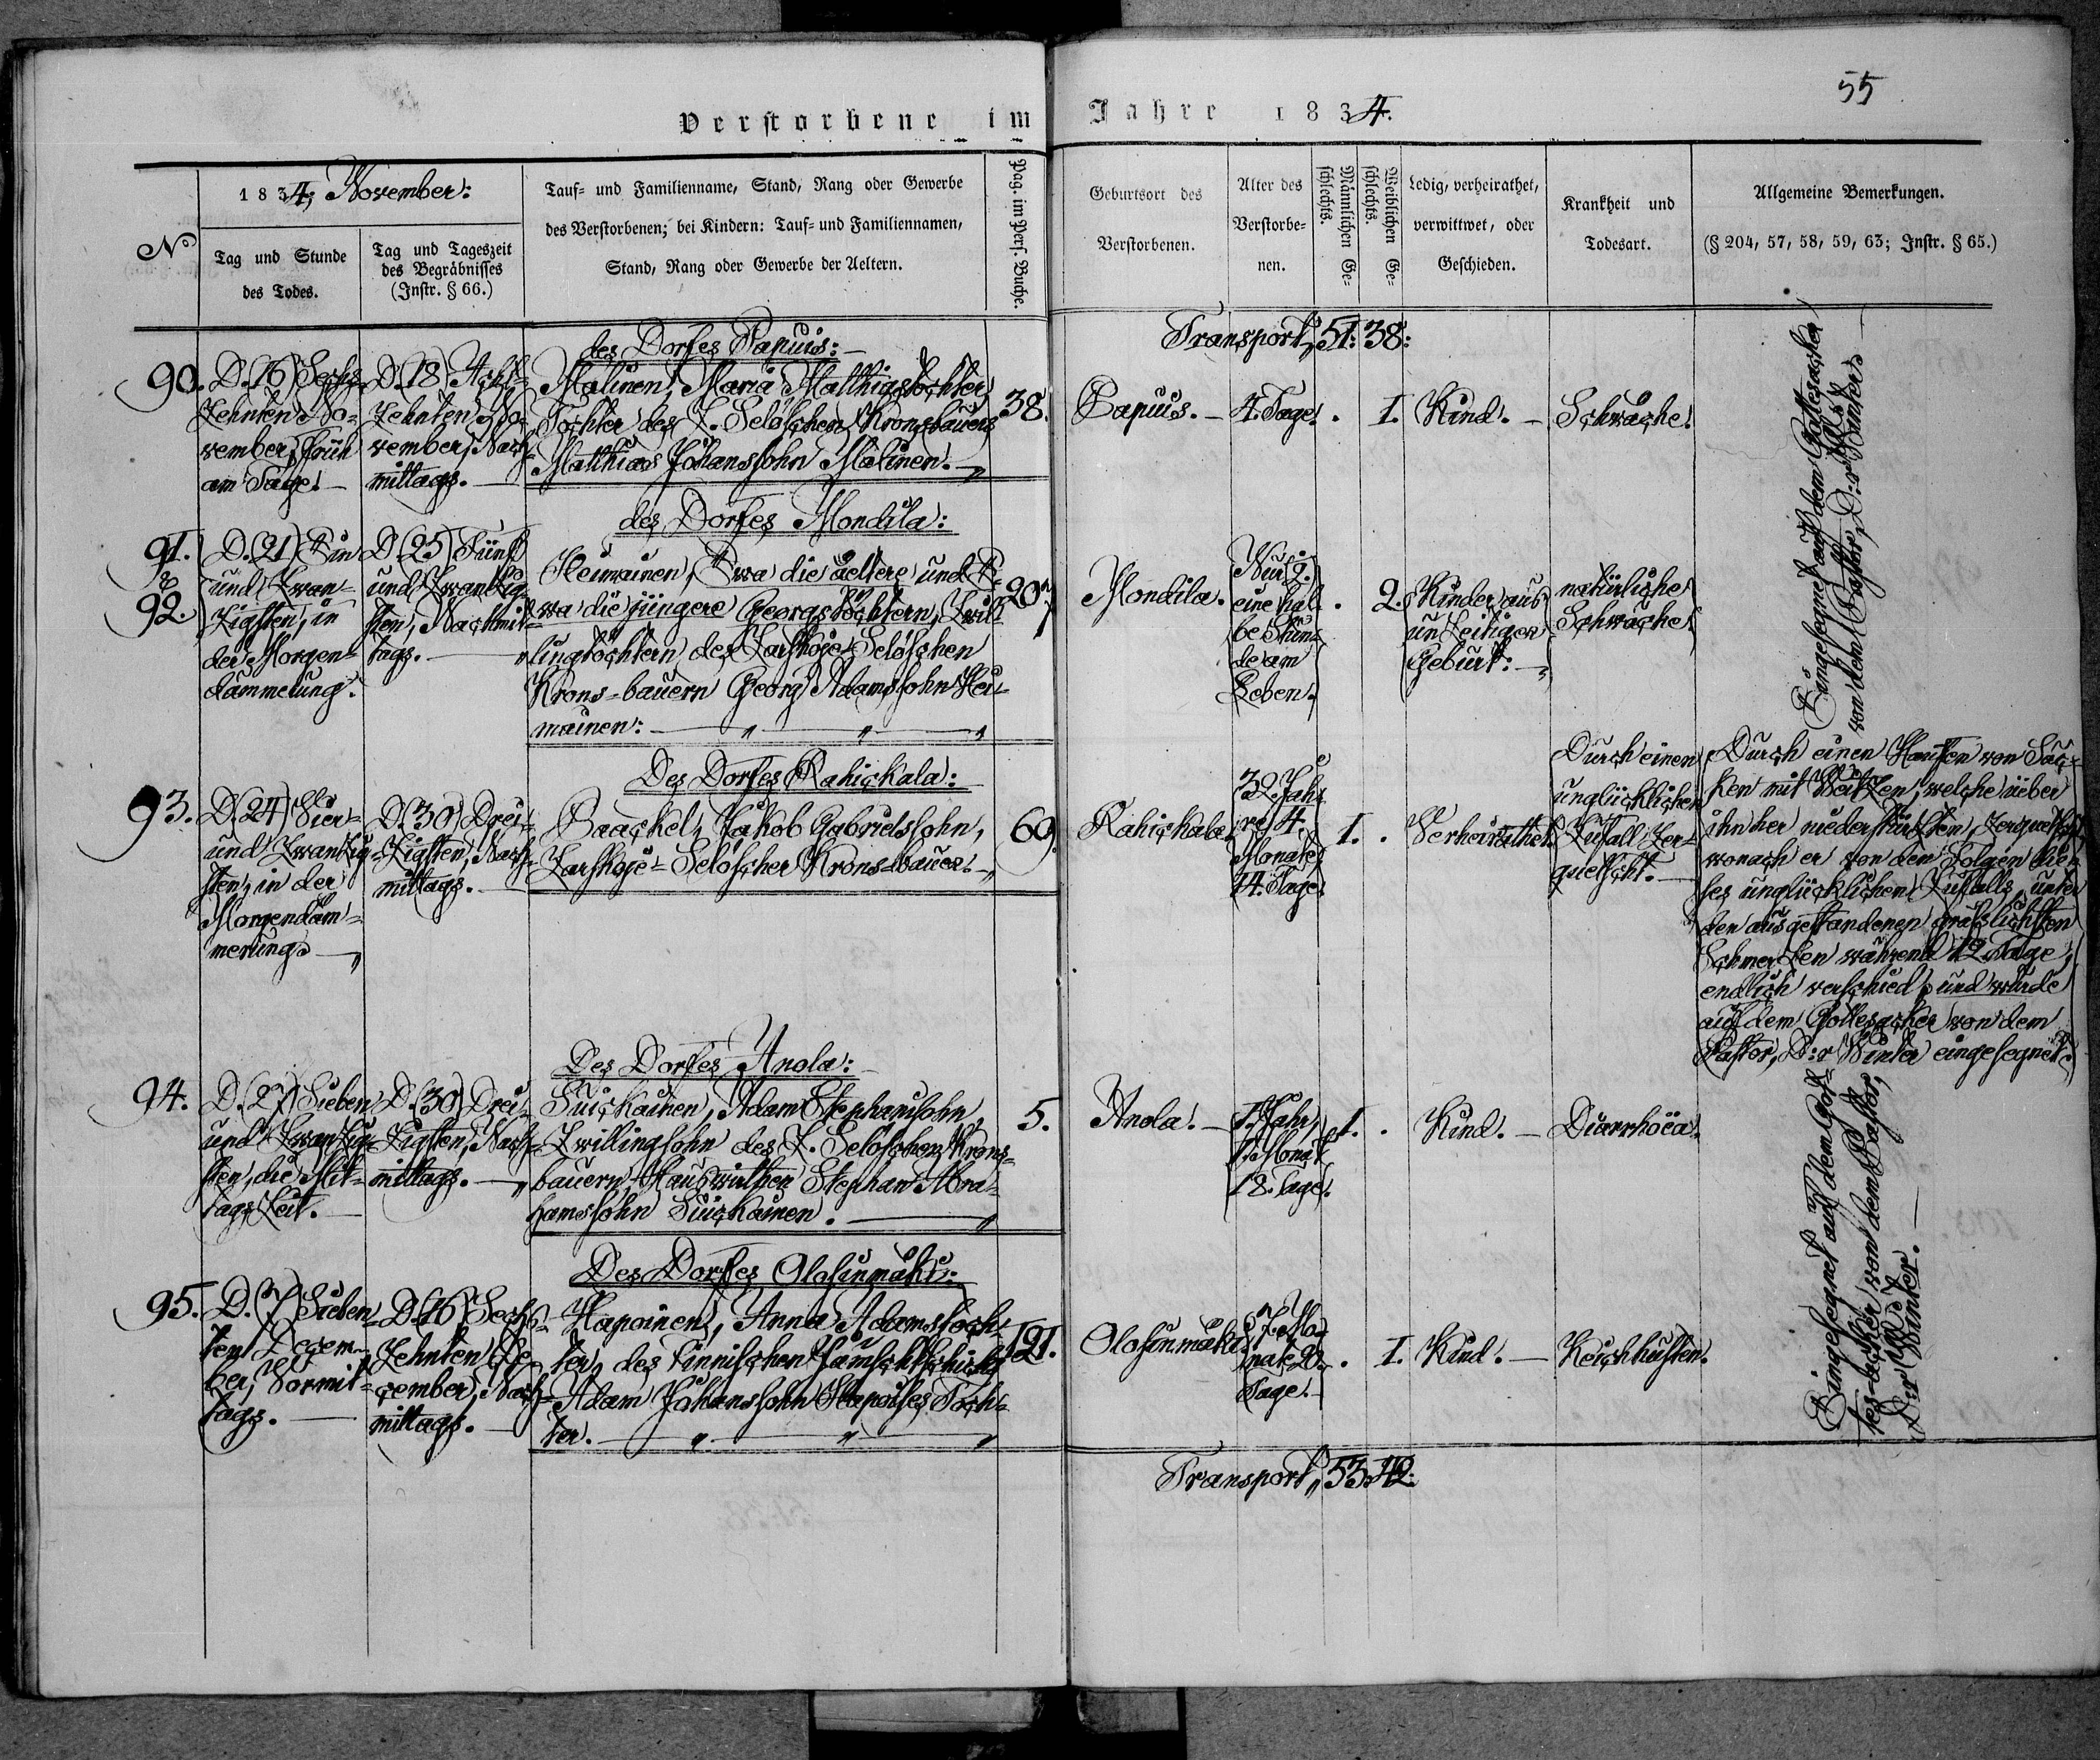 55
Verstorbene im Jahre 1834.
No
1834, November:
Tag und Stunde
des Todes.
Tag und Tageszeit
des Begräbnisses
(Instr. § 66.)
Tauf= und Familienname, Stand, Rang oder Gewerbe
des Verstorbenen; bei Kindern: Tauf= und Familiennamen,
Stand, Rang oder Gewerbe der Aeltern.
Pag. im Pers. Buche.
Geburtsort des
Verstorbenen.
Alter des
Verstorbe=
nen.
Männlichen Ge=
schlechts.
Weiblichen Ge=
schlechts.
Ledig, verheirathet,
verwittwet, oder
Geschieden.
Krankheit und
Todesart.
Allgemeine Bemerkungen.
(§ 204, 57, 58, 59, 63; Instr. § 65.)
Transport, 51: 38:
des Dorfes Papuis:
90.
D. (16) Sechs
Zehnten No=
vember, Früh
am Tage.
D. (18) Acht=
Zehnten No=
vember, Nach=
mittags.
Malinen, Maria Matthiastochter,
Tochter des Z. Seloschen Kronsbauern
Matthias Johanssohn Malinen.
38.
Papuis.
4. Tage.
1.
Kind.
Schwäche.
des Dorfes Mondila:
91.
&
92.
D. (21) Ein
und Zwan=
Zigsten, in
der Morgen=
dämmerung.
D. (25) Fünf
und Zwanzig=
sten, Nachmit=
tags.
Heimainen, Ewa die aeltere und E=
wa die jüngere Georgstöchtern, Zwil=
lingtöchtern des Zarskoje Seloschen
Krons=bauern Georg Adamssohn Hei=
mainen:
207
Mondila.
Nur
eine hal=
be Stun=
de am
Leben.
2.
Kinder aus
unZeitiger
Geburt:
natürliche
Schwäche.
Eingesegnet auf dem Gottesacker
von dem Pastor, D:r Winter.
Des Dorfes Rahickala:
93.
D. (24) Vier=
und Zwanzig=
sten, in der
Morgendäm=
merung.
D. (30) Drei=
Zigsten, Nach=
mittags.
Paackel, Jakob Gabrielssohn,
Zarskoje=Seloscher Krons=bauer.
69.
Rahickala.
32. Jah=
re 4.
Monate
14. Tage.
1.
Verheirathet.
Durch einen
unglücklichen
Zufall Zer=
quetscht.
Durch einen Haufen von Säc=
ken mit Weitzen, welche über
ihn her niederstürtzten, Zerquetscht,
wonach er von den Folgen die=
ses unglücklichen Zufalls, unter
den ausgestandenen grässlichsten
SchmerZen während 12 Tage,
endlich verschied, und wurde
auf dem Gottesacker von dem
Pastor, D:r Winter eingesegnet.
Des Dorfes Anola:
94.
D. (27) Sieben
und Zwanzig=
sten, die Mit=
tagsZeit.
D. (30) Drei=
Zigsten, Nach=
mittags.
Suickainen, Adam Stephanssohn,
Zwillingsohn des Z. Seloschen Krons=
bauern, Hauswirthen Stephan Abra=
hamssohn Suickainen.
5.
Anola.
1. Jahr,
1. Monat
18. Tage.
1.
Kind.
Diarrhöea.
Des Dorfes Olosinmäki:
95.
D. (7) Sieben=
ten Decem=
ber, Vormit=
tags.
D. (16) Sechs=
Zehnten De=
cember, Nach=
mittags.
Hapoinen, Anna Adamstoch=
ter, des Finnischen
Adam Johanssohn Hapoises Toch=
ter.
121.
Olosinmäki.
7. Mo=
nate 20.
Tage.
1.
Kind.
Keichhusten.
Eingesegnet auf dem Got=
tes=acker, von dem Pastor,
D:r Winter.
Transport, 53. 42.